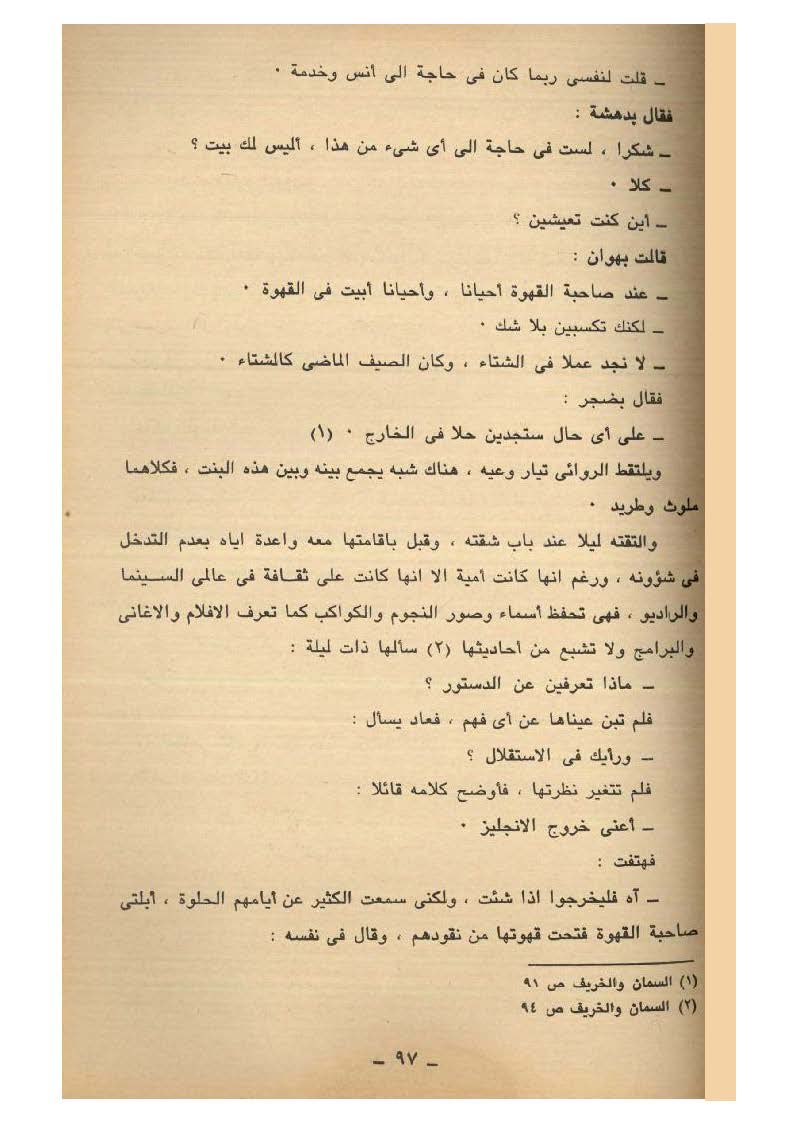 ـ قلت لنفسى ربما كان فى حاجة الى أنس وخدمة ٠
فقال بدهشة :
ـ شكرا ، لست فى حاجة الى أى شىء من هذا ، أليس لك بيت ؟
ـ كلا ٠
ـ أين كنت تعيشين ؟
قالت بهوان :
ـ عند صاحبة القهوة أحيانا ، وأحيانا أبيت فى القهوة ٠
ـ لكنك تكسبين بلا شك ٠
ـ لا نجد عملا فى الشتاء ، وكان الصيف الماضى كالشتاء ٠
فقال بضجر :
ـ على أى حال ستجدين حلا فى الخارج ٠ (١)
ويلتقط الروائى تيار وعيه ، هناك شبه يجمع بينه وبين هذه البنت ، فكلاهما
ملوث وطريد ٠
والتقته ليلا عند باب شقته ، وقبل باقامتها معه واعدة اياه بعدم التدخل
فى شؤونه ، ورغم انها كانت أمية الا انها كانت على ثقـافة فى عالمى السـينما
والراديو ، فهى تحفظ أسماء وصور النجوم والكواكب كما تعرف الافلام والاغانى
والبرامج ولا تشبع من أحاديثها (٢) سألها ذات ليلة :
ـ ماذا تعرفين عن الدستور ؟
فلم تبن عيناها عن أى فهم ، فعاد يسأل :
ـ ورأيك فى الاستقلال ؟
فلم تتغير نظرتها ، فأوضح كلامه قائلا :
ـ أعنى خروج الانجليز ٠
فهتفت :
ـ آه فليخرجوا اذا شئت ، ولكنى سمعت الكثير عن أيامهم الحلوة ، أبلتى
صاحبة القهوة فتحت قهوتها من نقودهم ، وقال فى نفسه :
(١) السمان والخريف ص ٩١
(٢) السمان والخريف ص ٩٤
ـ ٩٧ ـ